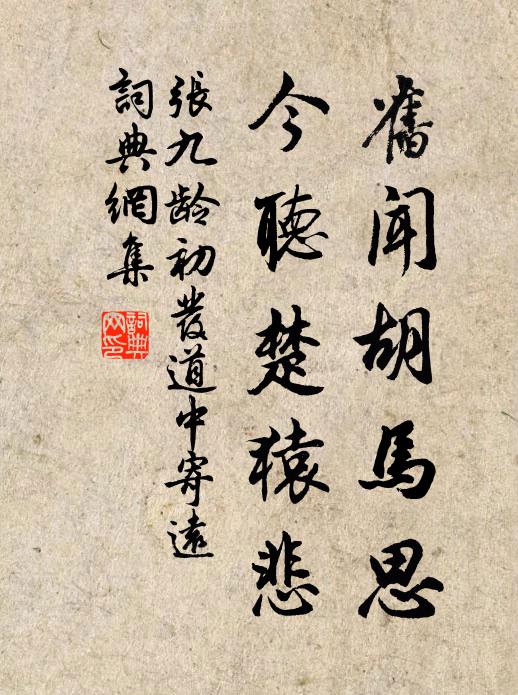 舊聞胡馬思
今聽楚猿悲
張九龄初發道中寄遠
詞典網集
詞典網印